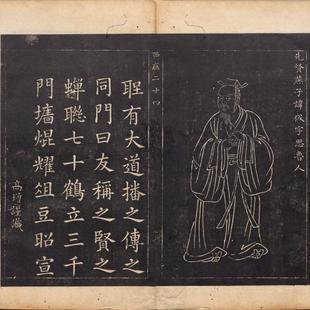 先賢燕子諱伋字思魯人
西廡二十四
聖有大道播之傳之
同門曰友稱之賢之
蟬聯七十鶴立三千
門墻焜耀俎豆昭宣
高謹識